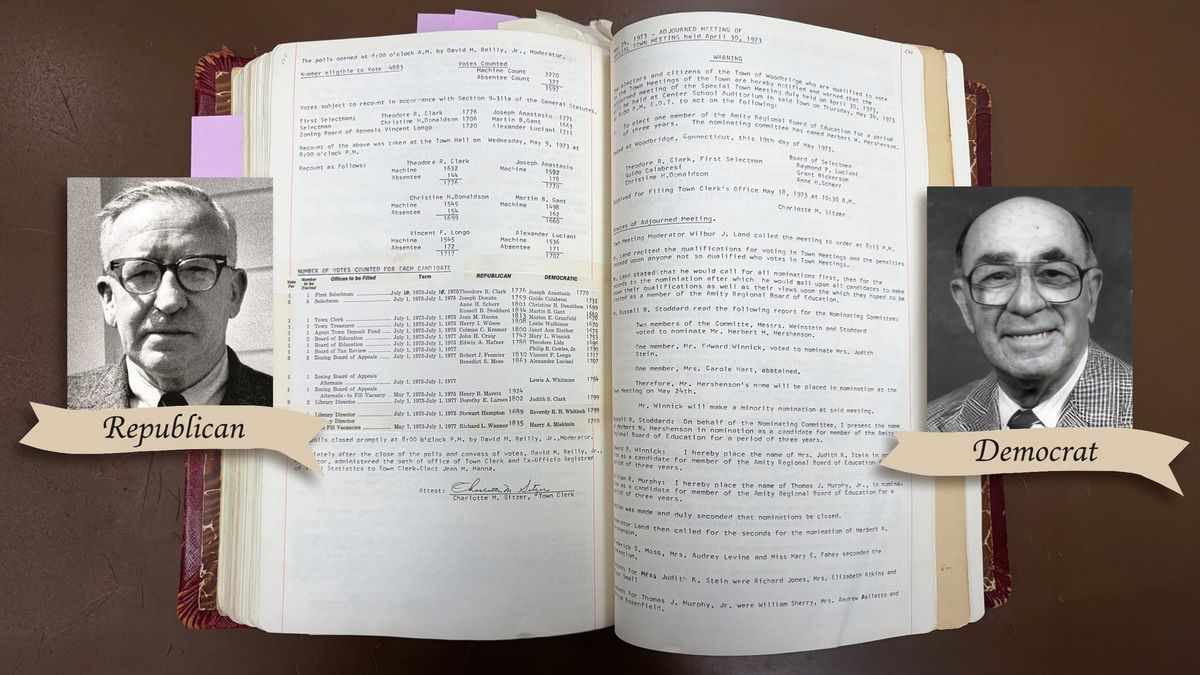 The polls opened at 6:00 o'clock A.M. by David M. Reilly, Jr., Moderator.
Number eligible to Vote 4883
Votes Counted
Machine Count 3270
Absentee Count 327
3597
Votes subject to recount in accordance with Section 9-311a of the General Statutes.
First Selectman; Theodore R. Clark 1776 Joseph Anastasio 1771
Selectman Christine H.Donaldson 1706 Martin B.Gant 1661
Zoning Board of Appeals Vincent Longo 1720 Alexander Luciani 1711
Recount of the above was taken at the Town Hall on Wednesday, May 9, 1973 at
8:00 o'clock P.M.
Recount as follows:
Theodore R. Clark Joseph Anastasio
Machine 1632 Machine 1592
Absentee 144 178
1776 1770
Christine H.Donaldson Martin B. Gant
Machine 1545 Machine 1498
Absentee 154 162
1699 1660
Vincent F. Longo Alexander Luciani
Machine 1545 Machine 1536
Absentee 172 Absentee 171
1717 1707
NUMBER OF VOTES COUNTED FOR EACH CANDIDATE
Vote For Number to be Elected Offices to be Filled Term REPUBLICAN DEMOCRATIC
1 1 First Selectman July 1975 Theodore R. Clark 1776 Joseph Anastasio 1770
Selectmen July 1, 1973-July 1, 1975 Joseph Donato 1759 Guido Calabresi
Anne H. Scherr 1801 Christine H. Donaldson
Russell B. Stoddard 1834 Martin B. Gant
1 1 Town Clerk July 1, 1973-July 1, 1975 Jean M. Hanna Marion E. Grunfeld
1 1 Town Treasurer July 1, 1973-July 1, 1975 Harry L. Wilson Leslie
1 1 Agent Town Deposit Fund July 1, 1973-July 1, 1975 Colman C. Kramer 1800 Janet Ann
Board of Education John H. Craig 1742 Mary L. Winnick
Board of Education Edwin A. Hafner 1788 Theodore Lidz
Board of Tax Review Philip B. Cowles, Jr.
Zoning Board of Appeals Robert J. 1830 Vincent F. Longo 1717
Benedict S. Moss 1863 Alexander Luciani 1707
Zoning Board of Appeals
Alternate July 1, 1973-July 1, 1977 Lewis A. Whitmire
Zoning Board of Appeals
Alternate - to Fill Vacancy May 7, 1973-July 1, Henry B. Maretz 1924
Library Director July 1, 1973-July 1, Dorothy E. Larsen 1802 Judith S. Clark 1799
Library Director July 1, 1973-July 1, Stewart Hampton 1689 Reverdy H. Whitlock 1799
Director
Fill Vacancies May 7, 1973-July 1, Richard L. Wanner 1835 Harry A. Miskimin
polls closed promptly at 8:00 o'clock P.M. by David M. Reilly, Jr., Moderator.
after the close of the polls and canvass of votes, David M. Reilly, Jr.,
administered the oath of office of Town Clerk and Ex-Officio Registrar
Statistics to Town Clerk-Elect Jean M. Hanna.
Attest: Charlotte M. Sitzer
Charlotte M. Sitzer, Town Clerk
1973 - ADJOURNED MEETING OF
TOWN MEETING held April 30, 1973
WARNING
electors and citizens of the Town of Woodbridge who are qualified to vote
Town Meetings of the Town are hereby notified and warned that the
adjourned meeting of the Special Town Meeting duly held on April 30, 1973,
be held at Center School Auditorium in said Town on Thursday, May 24, 1973
8:00 P.M. E.D.T. to act on the following:
To elect one member of the Amity Regional Board of Education for a period
of three years. The nominating committee has named Herbert W. Hershenson.
at Woodbridge, Connecticut, this 19th day of May 1973.
Theodore R. Clark, First Selectman Board of Selectmen
Guido Calabresi Raymond P. Luciani
Christine H.Donaldson Grant Nickerson
Anne H.Scherr
Received for Filing Town Clerk's Office May 18, 1973 at 10:30 A.M.
Charlotte M. Sitzer
Minutes of Adjourned Meeting.
Town Meeting Moderator Wilbur J. Land called the meeting to order at 8:13 P.M.
Land recited the qualifications for voting in Town Meetings and the penalties
imposed upon anyone not so qualified who votes in Town Meetings.
Land stated that he would call for all nominations first, then for the
seconds to the nomination after which he would call upon all candidates to make
their qualifications as well as their views upon the which they hoped to be
elected as a member of the Amity Regional Board of Education.
Russell B. Stoddard read the following report for the Nominating Committee:
Two members of the Committe, Messrs. Weinstein and Stoddard
voted to nominate Mr. Herbert M. Hershenson.
One member, Mr. Edward Winnick, voted to nominate Mrs. Judith
Stein.
One member, Mrs. Carole Hart, abstained.
Therefore, Mr. Hershenson's name will be placed in nomination at the
Town Meeting on May 24th.
Mr. Winnick will make a minority nomination at said meeting.
Russell B. Stoddard: On behalf of the Nominating Committee, I present the name
of Herbert N. Hershenson in nomination as a candidate for member of the Amity
Regional Board of Education for a period of three years.
B. Winnick: I hereby place the name of Mrs. Judith K. Stein in
as a candidate for member of the Amity Regional Board of Education
period of three years.
R. Murphy: I hereby place the name of Thomas J. Murphy, Jr., in nomina-
as a candidate for member of the Amity Regional Board of Education for a
period of three years.
was made and duly seconded that nominations be closed.
Moderator Land then called for the seconds for the nomination of Herbert N.
Hershenson.
Frederick S. Moss, Mrs. Audrey Levine and Miss Mary E. Fahey seconded the
nomination.
for Mrs Judith K. Stein were Richard Jones, Mrs. Elizabeth Atkins and
Small
for Thomas J. Murphy, Jr. were William Sherry, Mrs. Andrew Pallotto and
Rosenfield.
Republican
Democrat